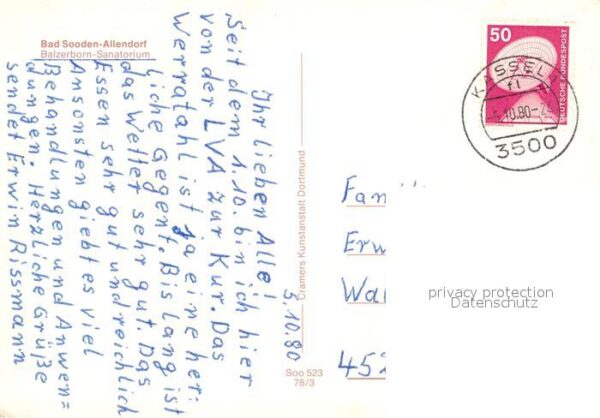 Bad Sooden-Allendorf
Balzerborn-Sanatorium
5.10.80
Ihr lieben Alle!
Seit dem 1.10. bin ich hier
von der LVA zur Kur. Das
Werratahl ist ja eine herr:
liche Gegent. Bislang ist
das Wetter sehr gut. Das
Essen sehr gut und reichlich
Ansonsten giebt es viel
Behandlungen und Anwen=
dungen. Herzliche Grüße
sendet Erwin Rissmann
Cramers Kunstanstalt Dortmund
Soo 523
78/3
50
DEUTSCHE BUNDESPOST
KASSEL
10.80
3500
Fam
Erw
Wal
452
privacy protection
Datenschutz